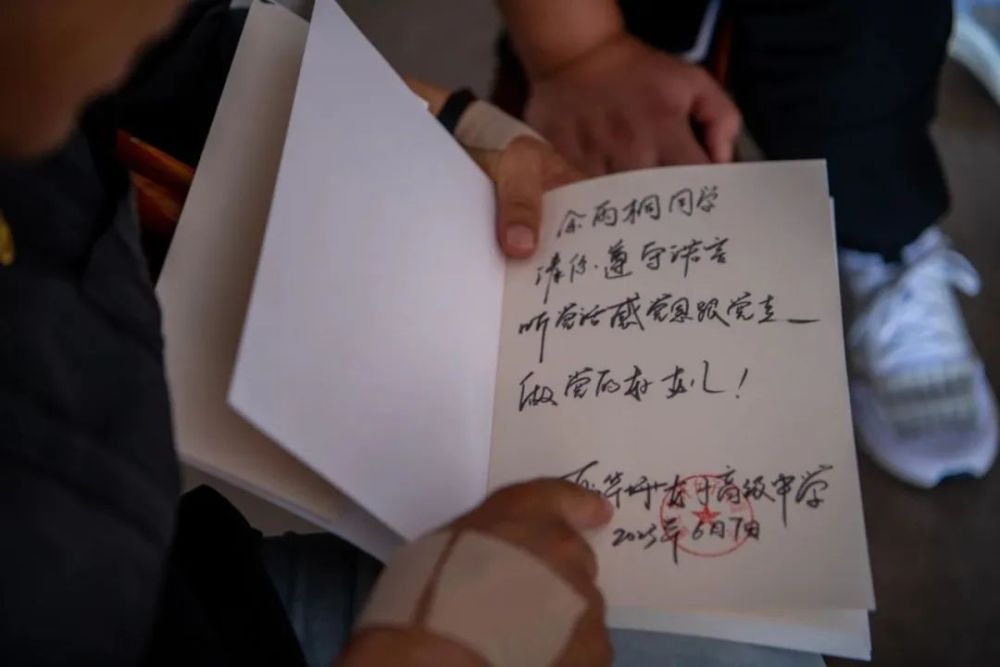 余雨桐同学
请你遵守诺言
听党话感党恩跟党走
做党的好女儿！
高级中学
2025年6月7日